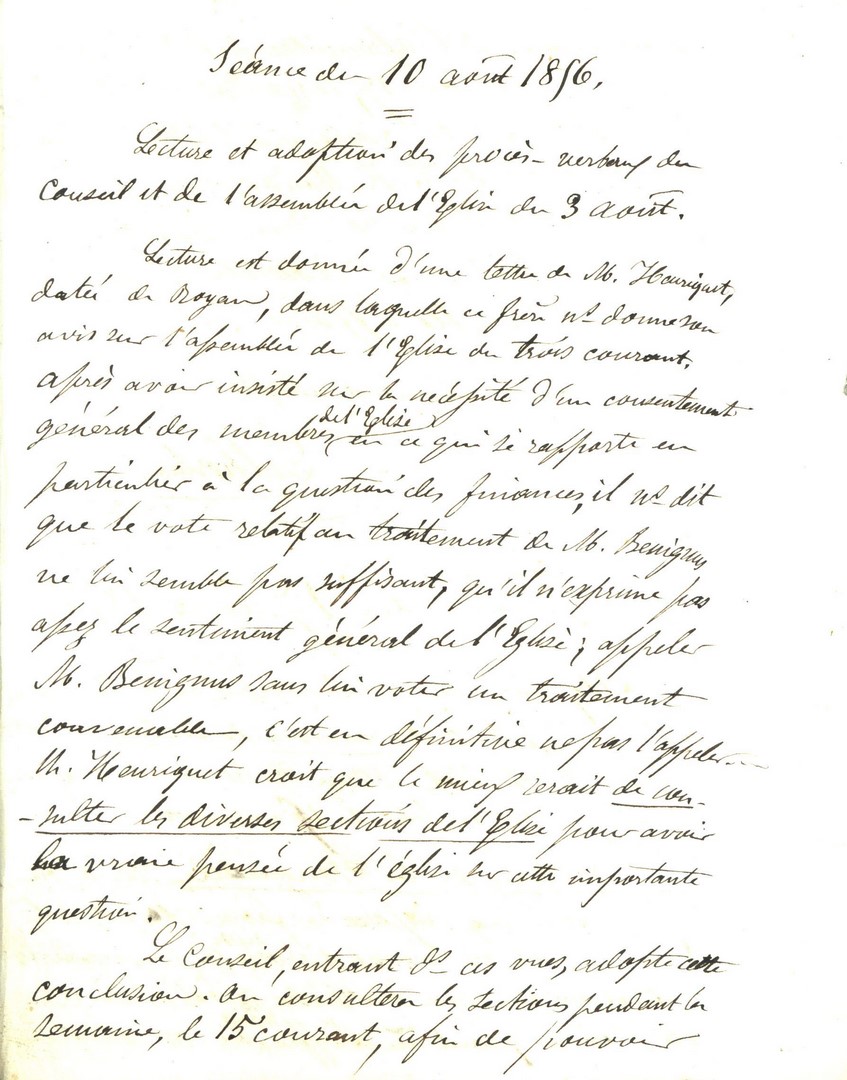 Séance du 10 août 1856.
Lecture et adoption des procès-verbaux du
Conseil et de l'assemblée de l'Eglise du 3 août.
Lecture est donnée d'une lettre de M. Henriquet,
datée de Royan, dans laquelle ce frère ns donne son
avis sur l'assemblée de l'Eglise du trois courant.
après avoir insisté sur la nécessité d'un consentement
général des membres de l'Eglise en ce qui se rapporte en
particulier à la question des finances, il ns dit
que le vote relatif au traitement de M. Benignus
ne lui semble pas suffisant, qu'il n'exprime pas
assez le sentiment général de l'Eglise ; appeler
M. Benignus sans lui voter un traitement
convenable, c'est en définitive ne pas l'appeler.
M. Henriquet croit que le mieux serait de con-
-sulter les diverses sections de l'Eglise pour avoir
la vraie pensée de l'église sur cette importante
question.
Le Conseil, entrant ds ces vues, adopte cette
conclusion. On consultera les sections pendant la
semaine, le 15 courant, afin de pouvoir